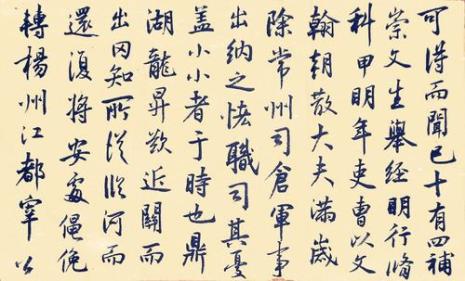 可得而聞已十有四補
崇文生舉經明行脩
科甲明年吏曹以文
翰朝散大夫滿歲
除常州司倉軍事
出納之恡職司其憂
盖小小者于時也鼎
湖龍昇欲近關而
出因知所從臨河而
還復將安處僶俛
轉楊州江都宰以